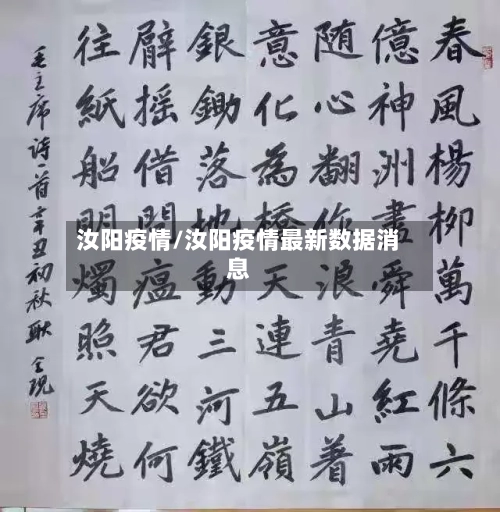 春風楊柳萬千條六
億神洲盡舜堯紅雨
随心翻作浪青山着
意化為橋天連五嶺
銀鋤落地動三河鐵
臂摇借問瘟君欲何
往紙船明燭照天燒
毛主席诗一首辛丑初秋耿
汝阳疫情/汝阳疫情最新数据消
息